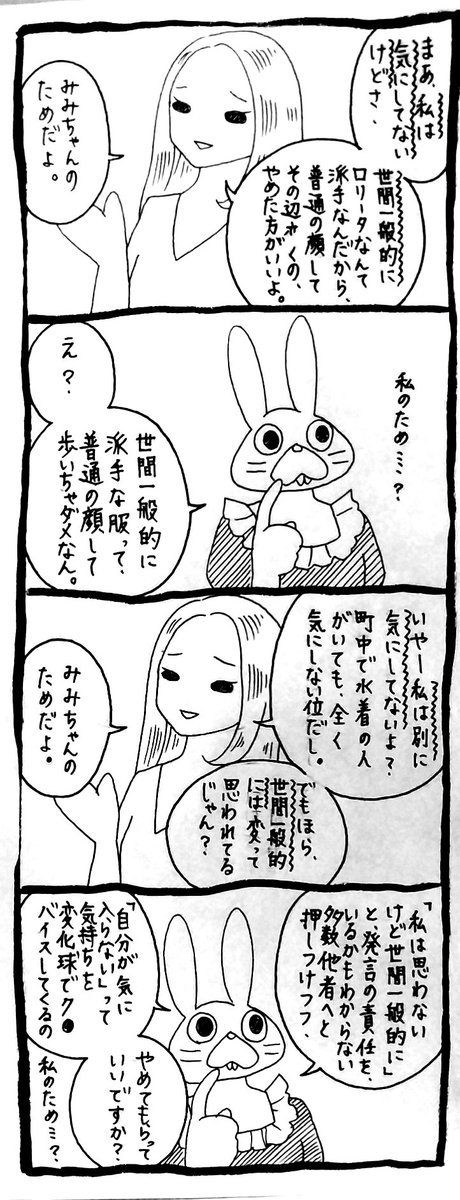 まあ、私は
気にしてない
けどさ、
世間一般的に
ロリータなんて
派手なんだから、
普通の顔して
その辺歩くの、
やめた方がいいよ。
みみちゃんの
ためだよ。
私のため…？
え？
世間一般的に
派手な服って、
普通の顔して
歩いちゃダメなん。
いやー私は別に
気にしてないよ？
町中で水着の人
がいても、全く
気にしない位だし。
でもほら、
世間一般的
には変って
思われてる
じゃん？
みみちゃんの
ためだよ。
「私は思わない
けど世間一般的に」
と、発言の責任を、
いるかもわからない
多数他者へと
押しつけつつ、
「自分が気に
入らない」って
気持ちを
変化球でク●
バイスしてくるの
やめてもらって
いいですか？
私のため…？